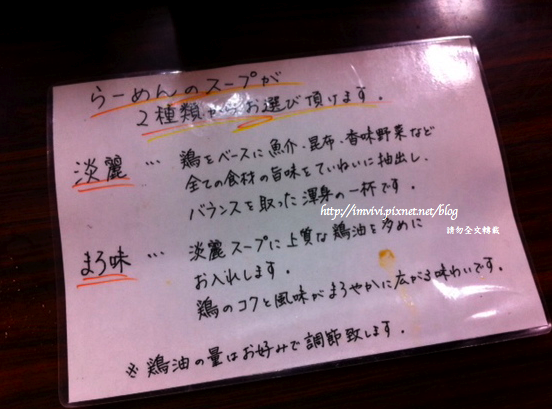 らーめんのスープが
2種類からお選び頂けます.
淡麗 … 鶏をベースに魚介・昆布・香味野菜など
全ての食材の旨味をていねいに抽出し、
バランスを取った渾身の一杯です。
http://imvivi.pixnet.net/blog
請勿全文轉載
まろ味 … 淡麗スープに上質な鶏油を多めに
お入れします。
鶏のコクと風味がまろやかに広がる味わいです。
※鶏油の量はお好みで調節致します.